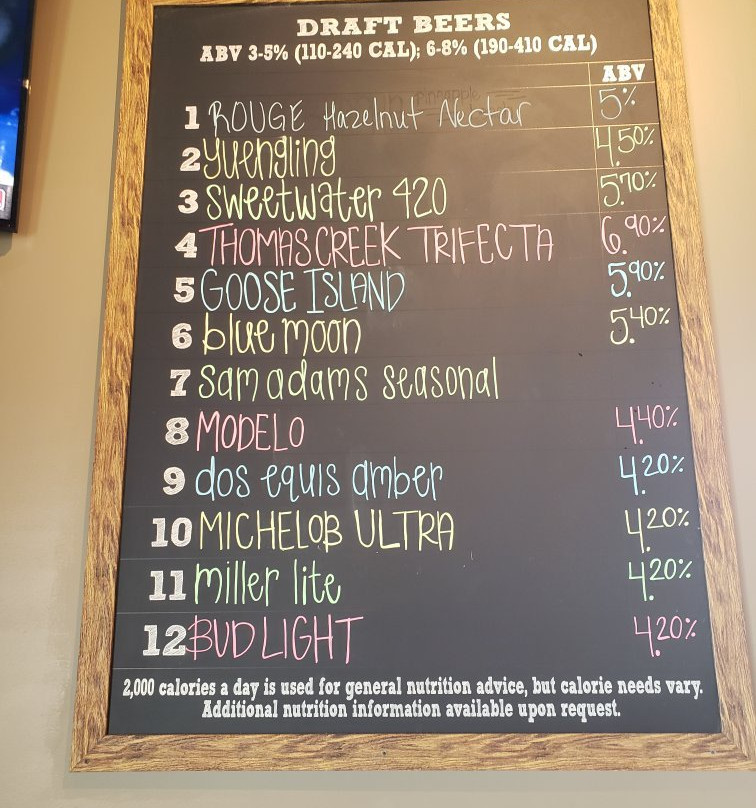 DRAFT BEERS
ABV 3-5% (110-240 CAL); 6-8% (190-410 CAL)
ABV
1 ROUGE Hazelnut Nectar 5%
2 yuengling 4.50%
3 sweetwater 420 5.70%
4 THOMAS CREEK TRIFECTA 6.90%
5 GOOSE ISLAND 5.90%
6 blue moon 5.40%
7 sam adams seasonal
8 MODELO 4.40%
9 dos equis amber 4.20%
10 MICHELOB ULTRA 4.20%
11 miller lite 4.20%
12 BUD LIGHT 4.20%
2,000 calories a day is used for general nutrition advice, but calorie needs vary.
Additional nutrition information available upon request.